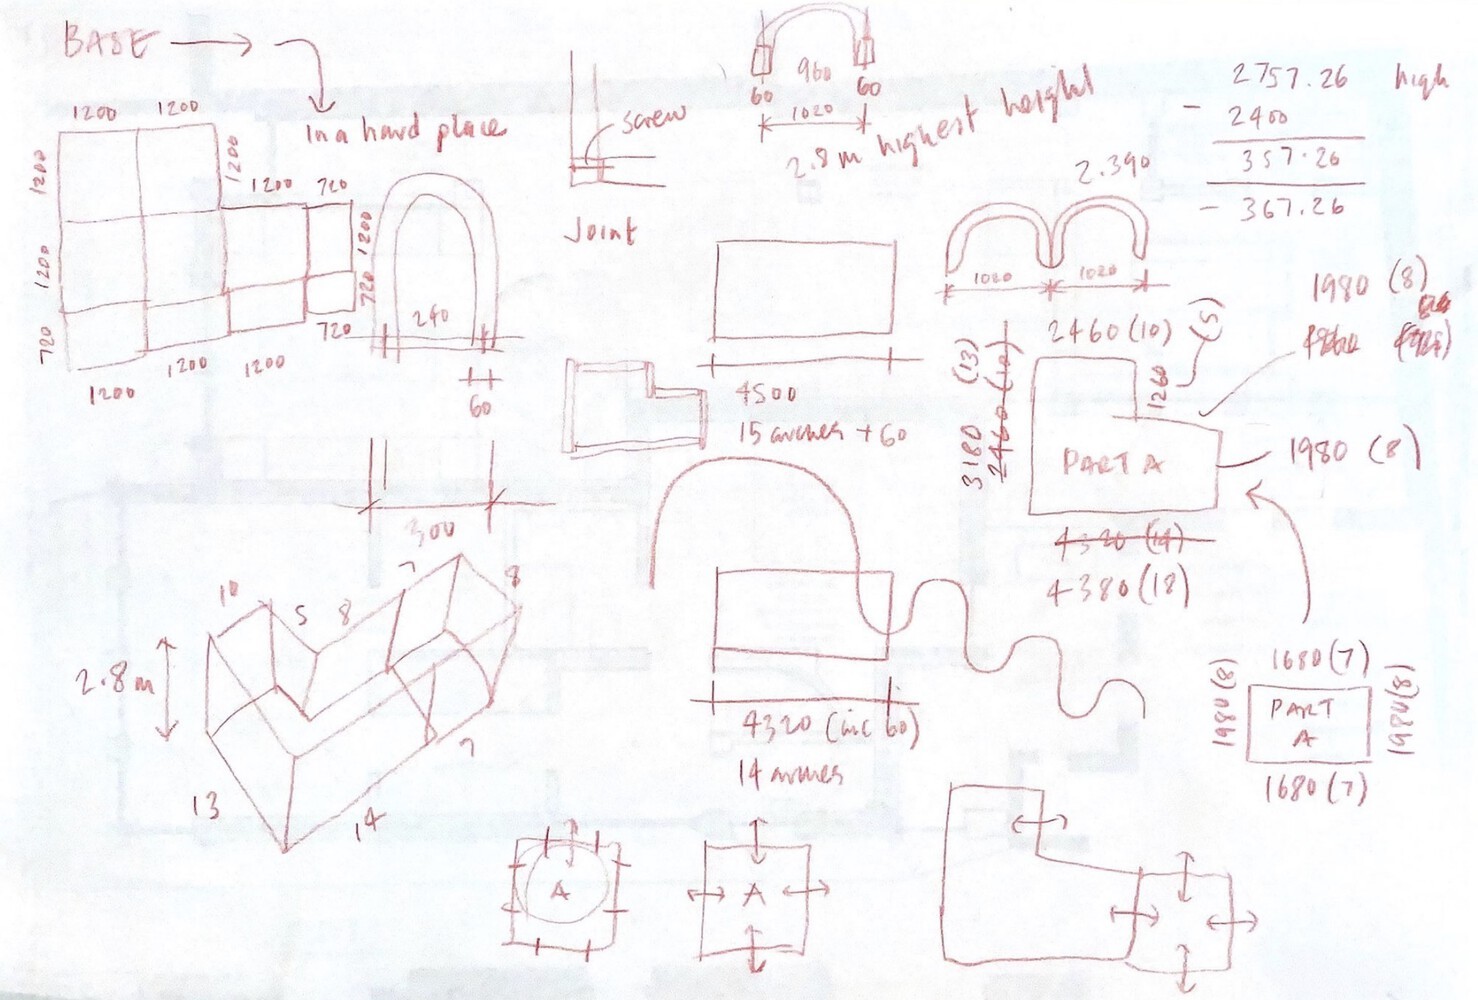 BASE
In a hard place
1200
1200
1200
1200
1200
720
1200
1200
720
720
720
1200
1200
1200
240
60
300
screw
Joint
960
60
60
1020
2.8 m highest height
2757.26 high
- 2400
357.26
- 367.26
2.390
1020
1020
4500
15 arches + 60
1980 (8)
2460 (10)
(5)
1260
3180 (13)
2460 (10)
PART A
1980 (8)
4320 (14)
4380 (18)
10
5
8
7
8
2.8 m
13
14
7
4320 (inc 60)
14 arches
1680 (7)
1980 (8)
PART
A
1980 (8)
1680 (7)
A
A